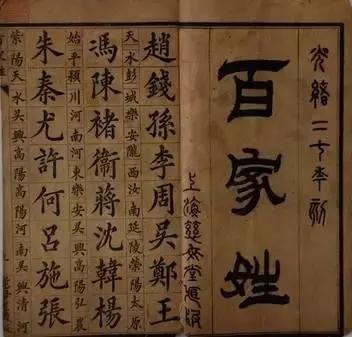 光緒二七年刻
百家姓
上海慈母堂
趙錢孫李周吳鄭王
天水彭城樂安隴西汝南延陵滎陽太原
馮陳褚衛蔣沈韓楊
始平潁川河南河東樂安吳興弘農
朱秦尤許何呂施張
天水吳興高陽河南吳興清河